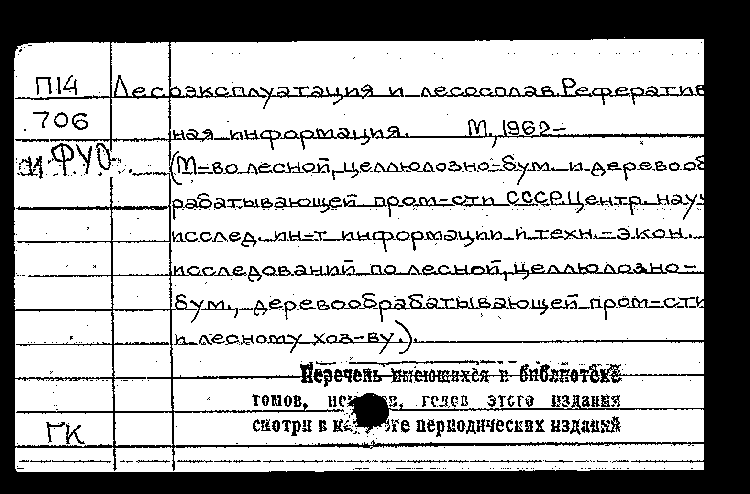 П14 Лесоэксплуатация и лесосплав. Рефератив
706 ная информация. М., 1962-
и ФУО. (М-во лесной, целлюлозно-бум. и деревооб
рабатывающей пром-сти СССР. Центр. науч
исслед. ин-т информации и техн.-экон.
исследований по лесной, целлюлозно-
бум., деревообрабатывающей пром-сти
и лесному хоз-ву.).
Перечень имеющихся в библиотеке
томов, годов этого издания
смотри в периодических изданий
ГК